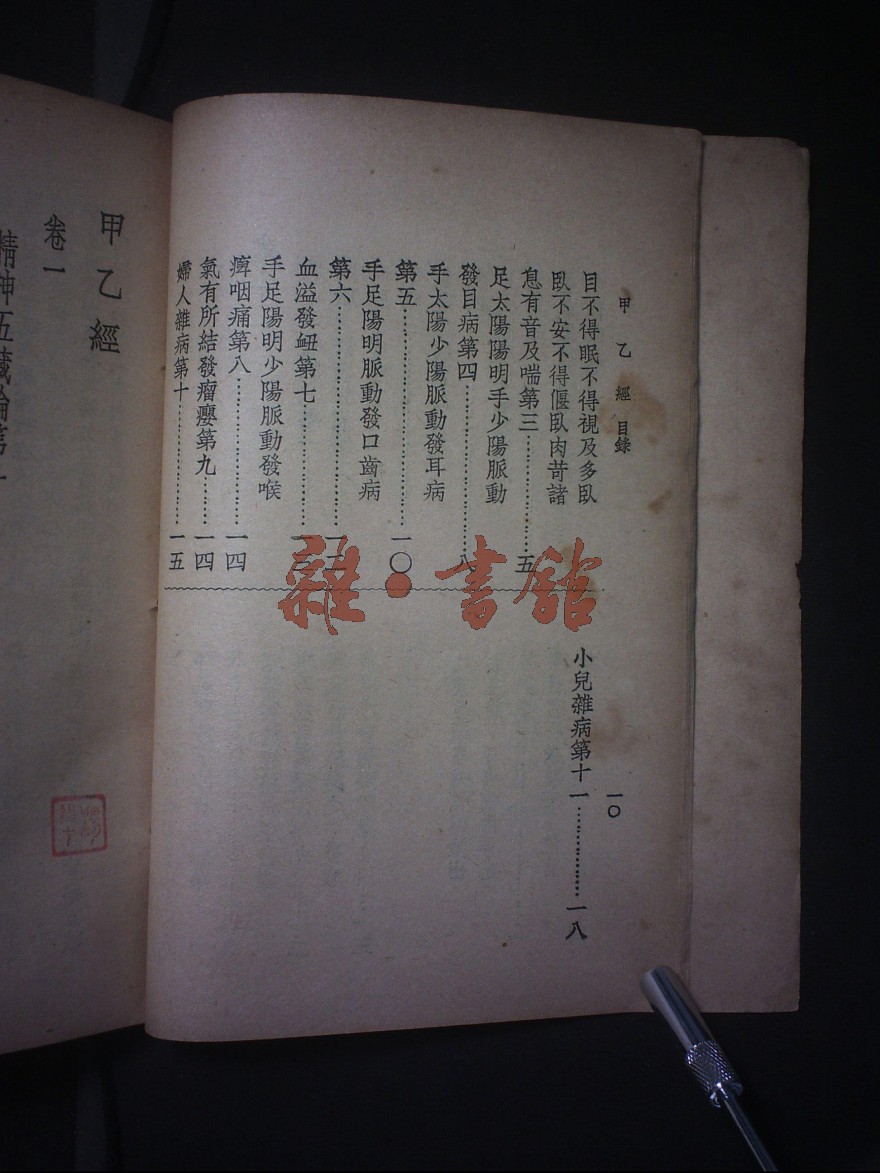 甲乙經 目錄
目不得眠不得視及多臥
臥不安不得偃臥肉苛諸
息有音及喘第三……五
足太陽陽明手少陽脈動
發目病第四……八
手太陽少陽脈動發耳病
第五……一〇
手足陽明脈動發口齒病
第六……
血溢發衄第七……
手足陽明少陽脈動發喉
痹咽痛第八……一四
氣有所結發瘤癭第九……一四
婦人雜病第十……一五
小兒雜病第十一……一八
一〇
甲乙經
卷一
精神五藏論第一
雜·書館